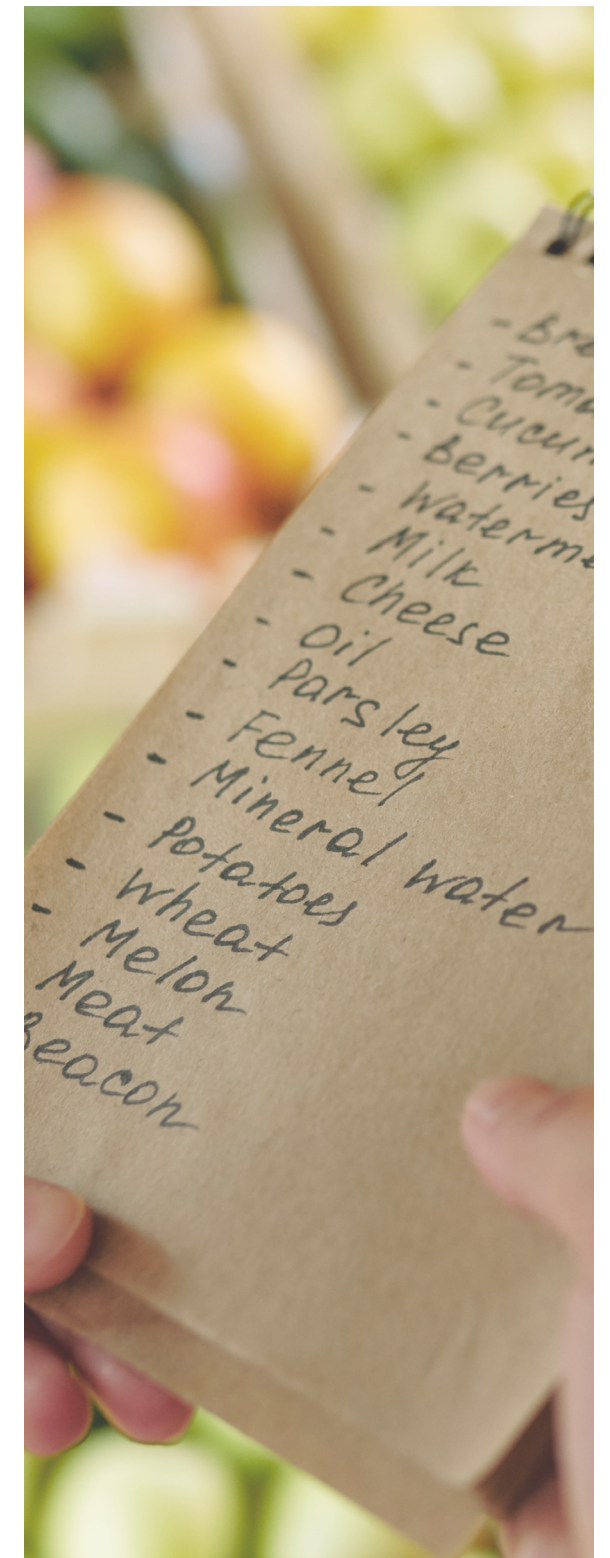 - Bre
- Toma
- Cucum
- Berries
- Waterme
- Milk
- Cheese
- Oil
- Parsley
- Fennel
- Mineral water
- Potatoes
- Wheat
- Melon
Meat
Beacon